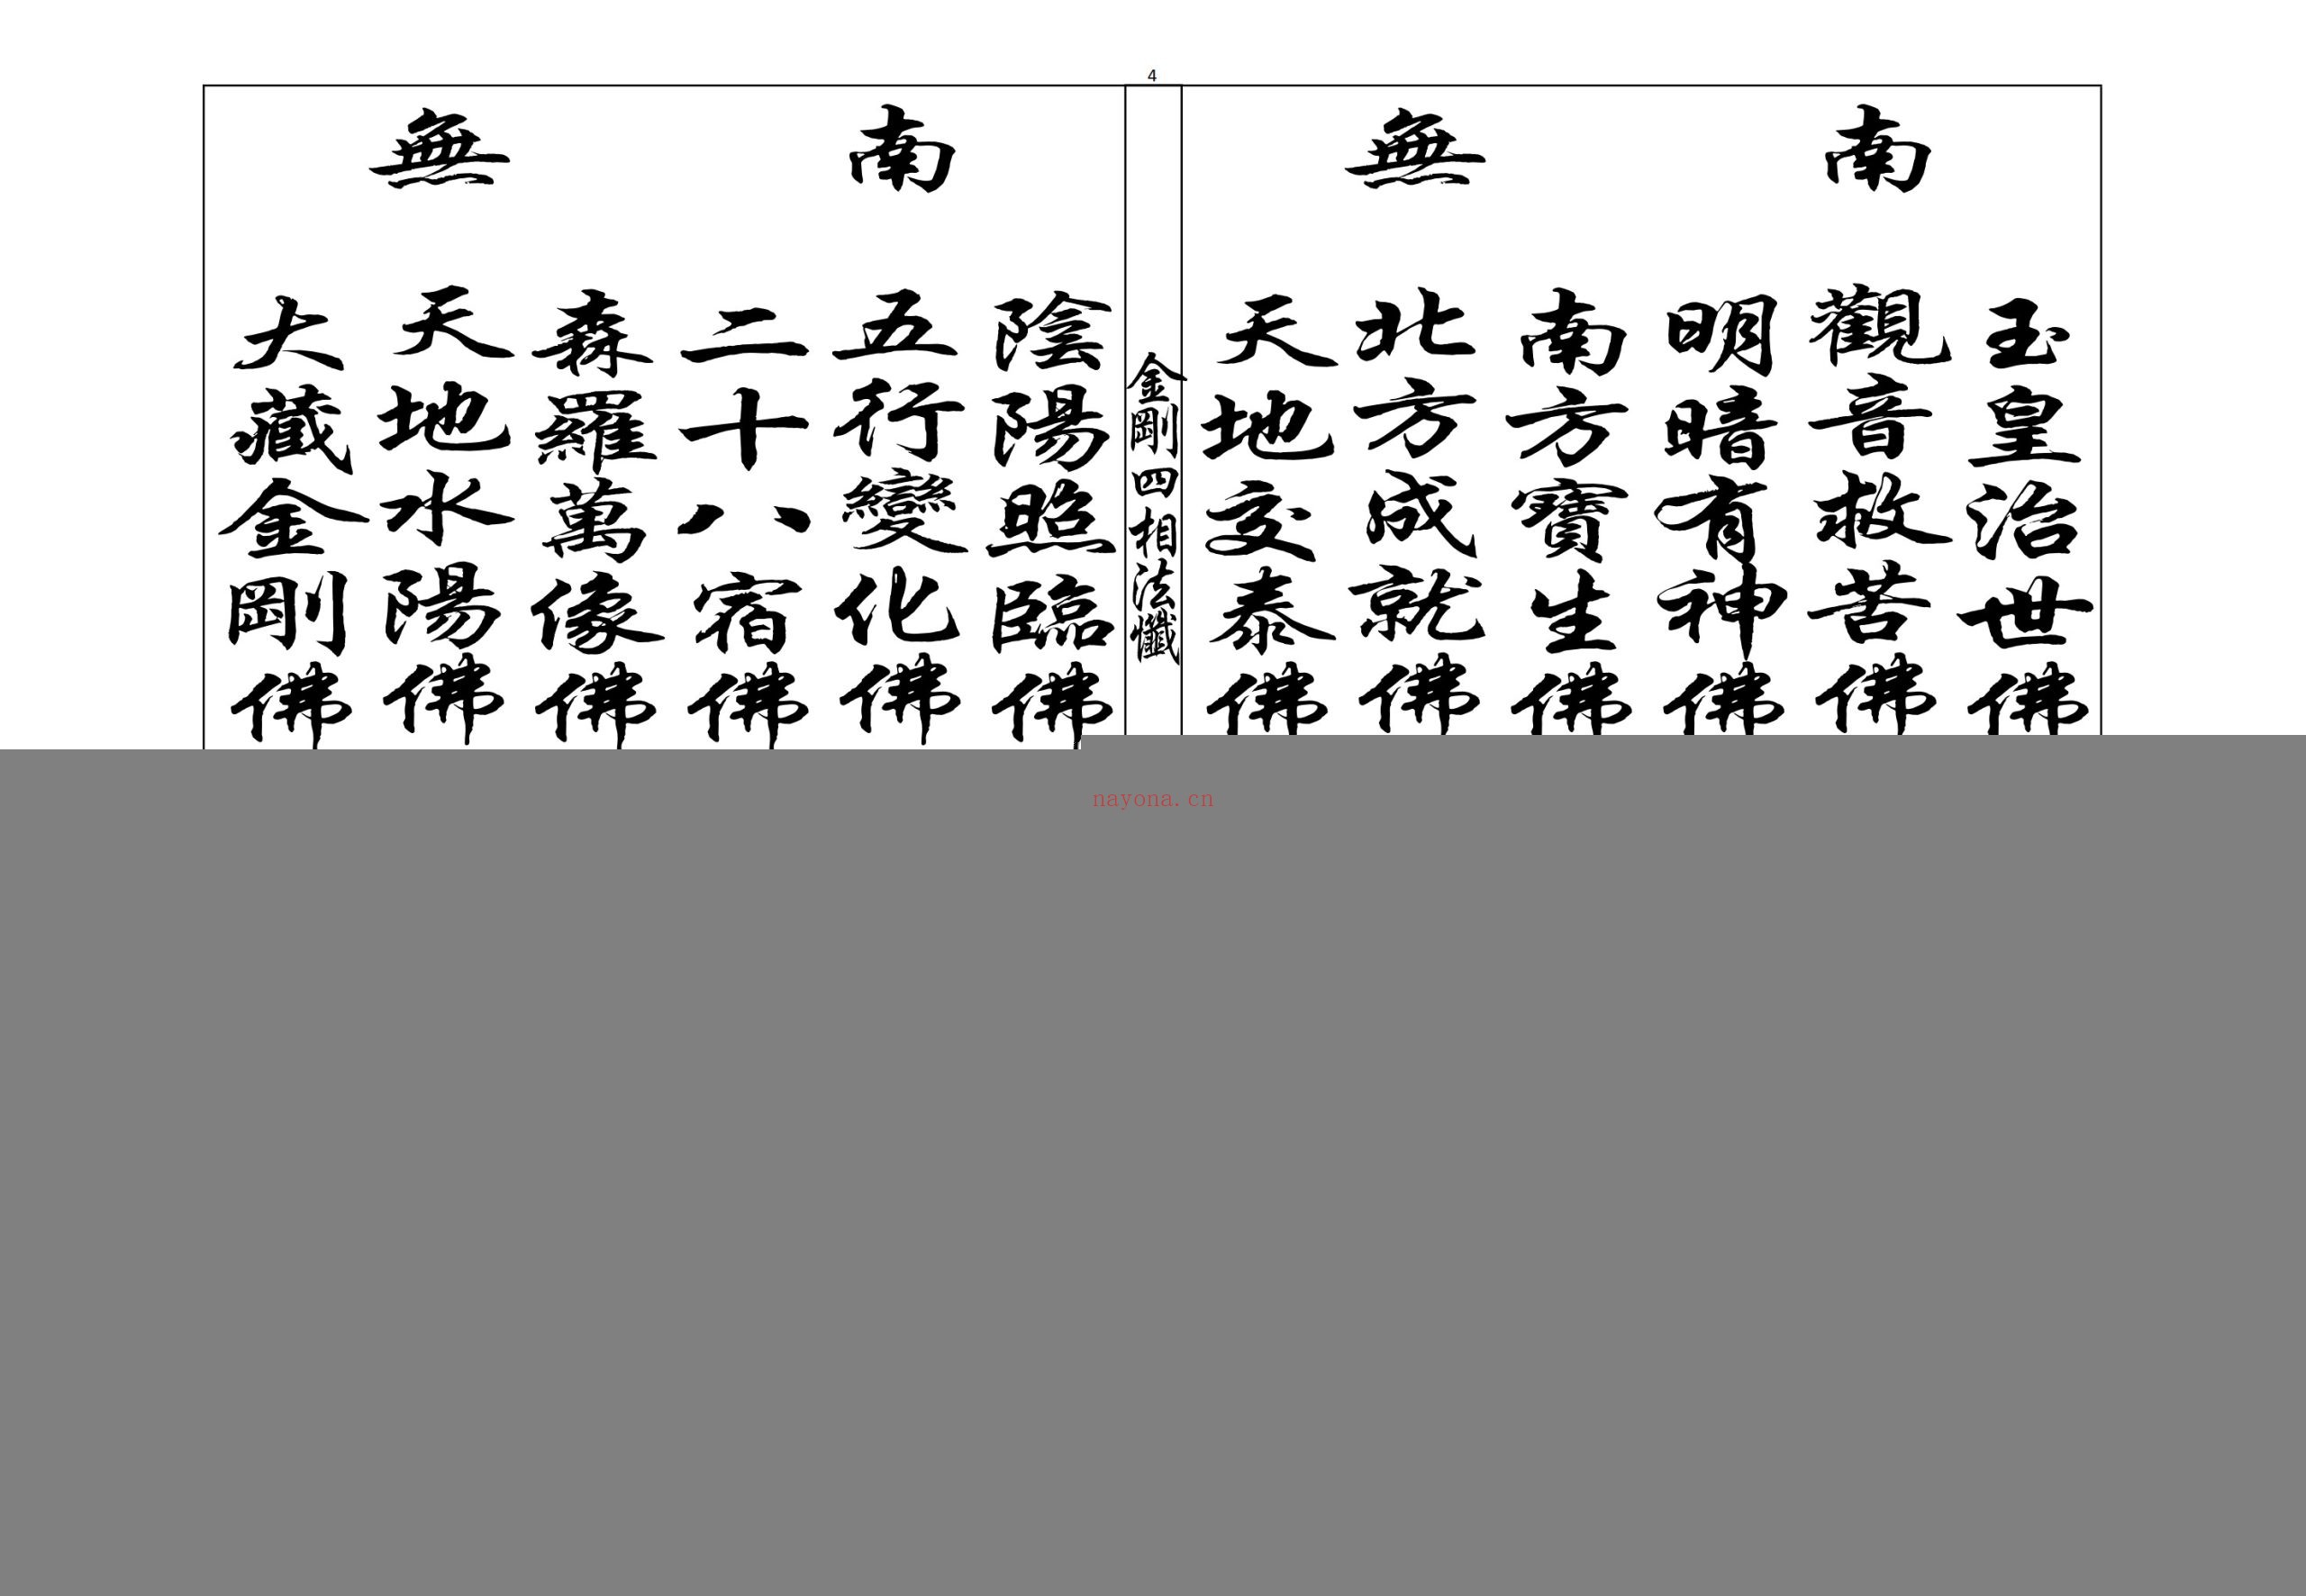 4
南 無
玉皇治世佛
觀音救苦佛
明暗有神佛
南方寶生佛
北方成就佛
天地交泰佛
金剛四相法懺
南 無
陰陽照臨佛
五行變化佛
二十八宿佛
森羅萬像佛
天地水陽佛
大藏金剛佛
nayona.cn